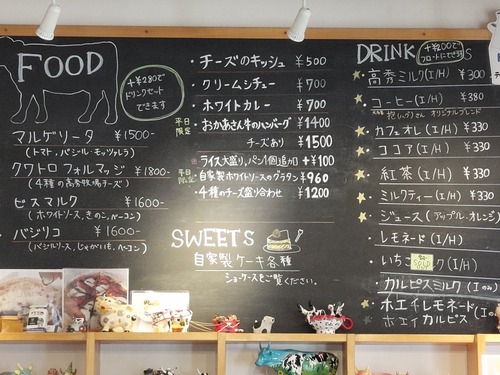 FOOD
+¥280で
ドリンクセット
できます
マルゲリータ ¥1500-
(トマト、バジル・モッツァレラ)
クワトロフォルマッジ ¥1800-
(4種の高秀牧場チーズ)
ビスマルク ¥1600-
(ホワイトソース、きのこ、ベーコン)
バジリコ ¥1600-
(バジルソース、じゃがいも、ベーコン)
・チーズのキッシュ ¥500
・クリームシチュー ¥700
・ホワイトカレー ¥700
平日
限定
・おかあさん牛のハンバーグ ¥1400
チーズあり ¥1500
ライス大盛り,パン1個追加 +¥100
平日
限定
・自家製ホワイトソースのグラタン ¥960
・4種のチーズ盛り合わせ ¥1200
SWEETS
自家製ケーキ各種
ショーケースをご覧ください。
DRINKS
+¥200で
フロートにできます
高秀ミルク(I/H) ¥300
コーヒー(I/H) ¥380
オリジナルブレンド
カフェオレ(I/H) ¥330
ココア(I/H) ¥330
紅茶(I/H) ¥330
ミルクティー(I/H) ¥330
ジュース(アップル・オレンジ)
レモネード(I/H)
いちご ミルク(I/H)
SOLD
カルピスミルク(Iのみ)
ホエイレモネード
ホエイカルピス